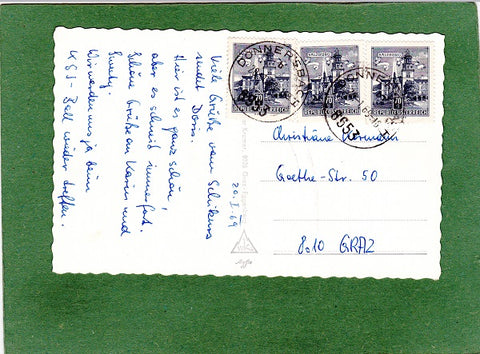 Viele Grüße vom Schikurs
sendet Doris.
Hier ist es ganz schön,
aber es schneit immerfort.
Schöne Grüße an Karin und
Wir werden uns ja beim
KSJ-Ball wieder treffen.
20.I.69
DONNERSBACH
8953
8953
REPUBLIK ÖSTERREICH
Christiane
Goethe-Str. 50
8010 GRAZ